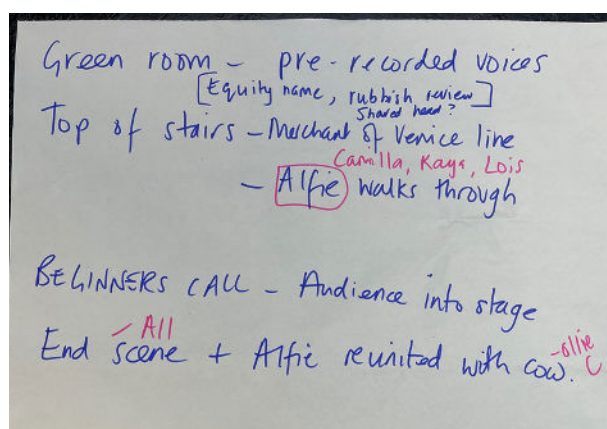 Green room - pre-recorded voices
[Equity name, rubbish review]
Shared head?
Top of stairs - Merchant of Venice line
Camilla, Kaya, Lois
- Alfie walks through
BEGINNERS CALL - Audience into stage
- All
End scene + Alfie reunited with cow.
- ollie C